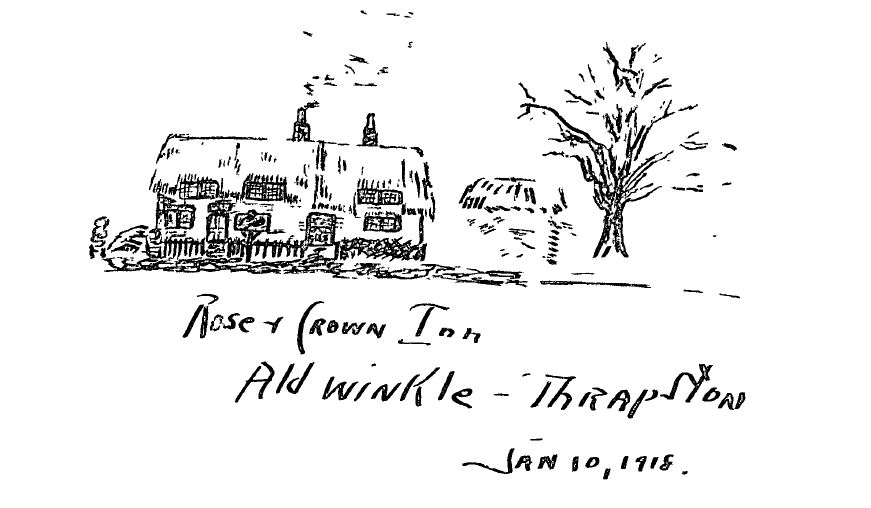 Rose & Crown Inn
Aldwinkle - Thrapston
Jan 10, 1918.